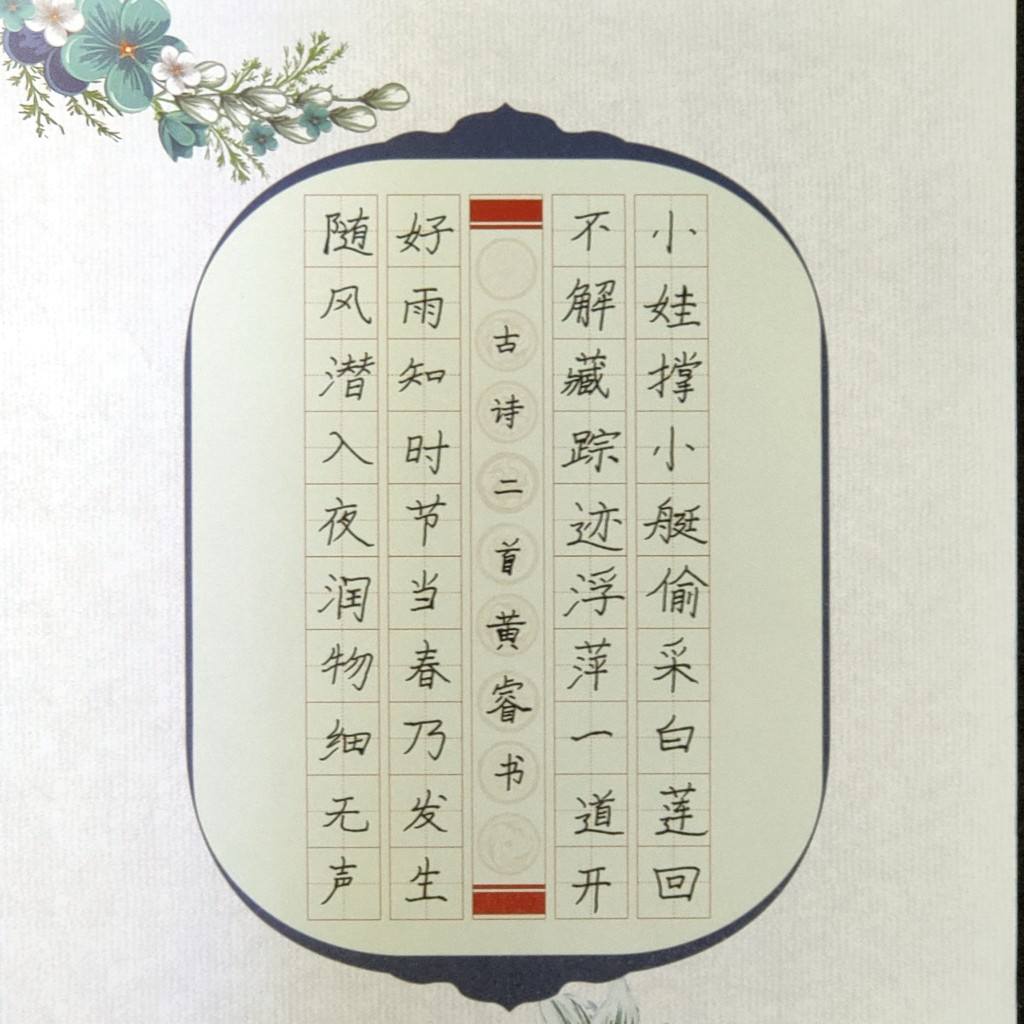 小娃撑小艇偷采白莲回
不解藏踪迹浮萍一道开
古诗二首黄睿书
好雨知时节当春乃发生
随风潜入夜润物细无声